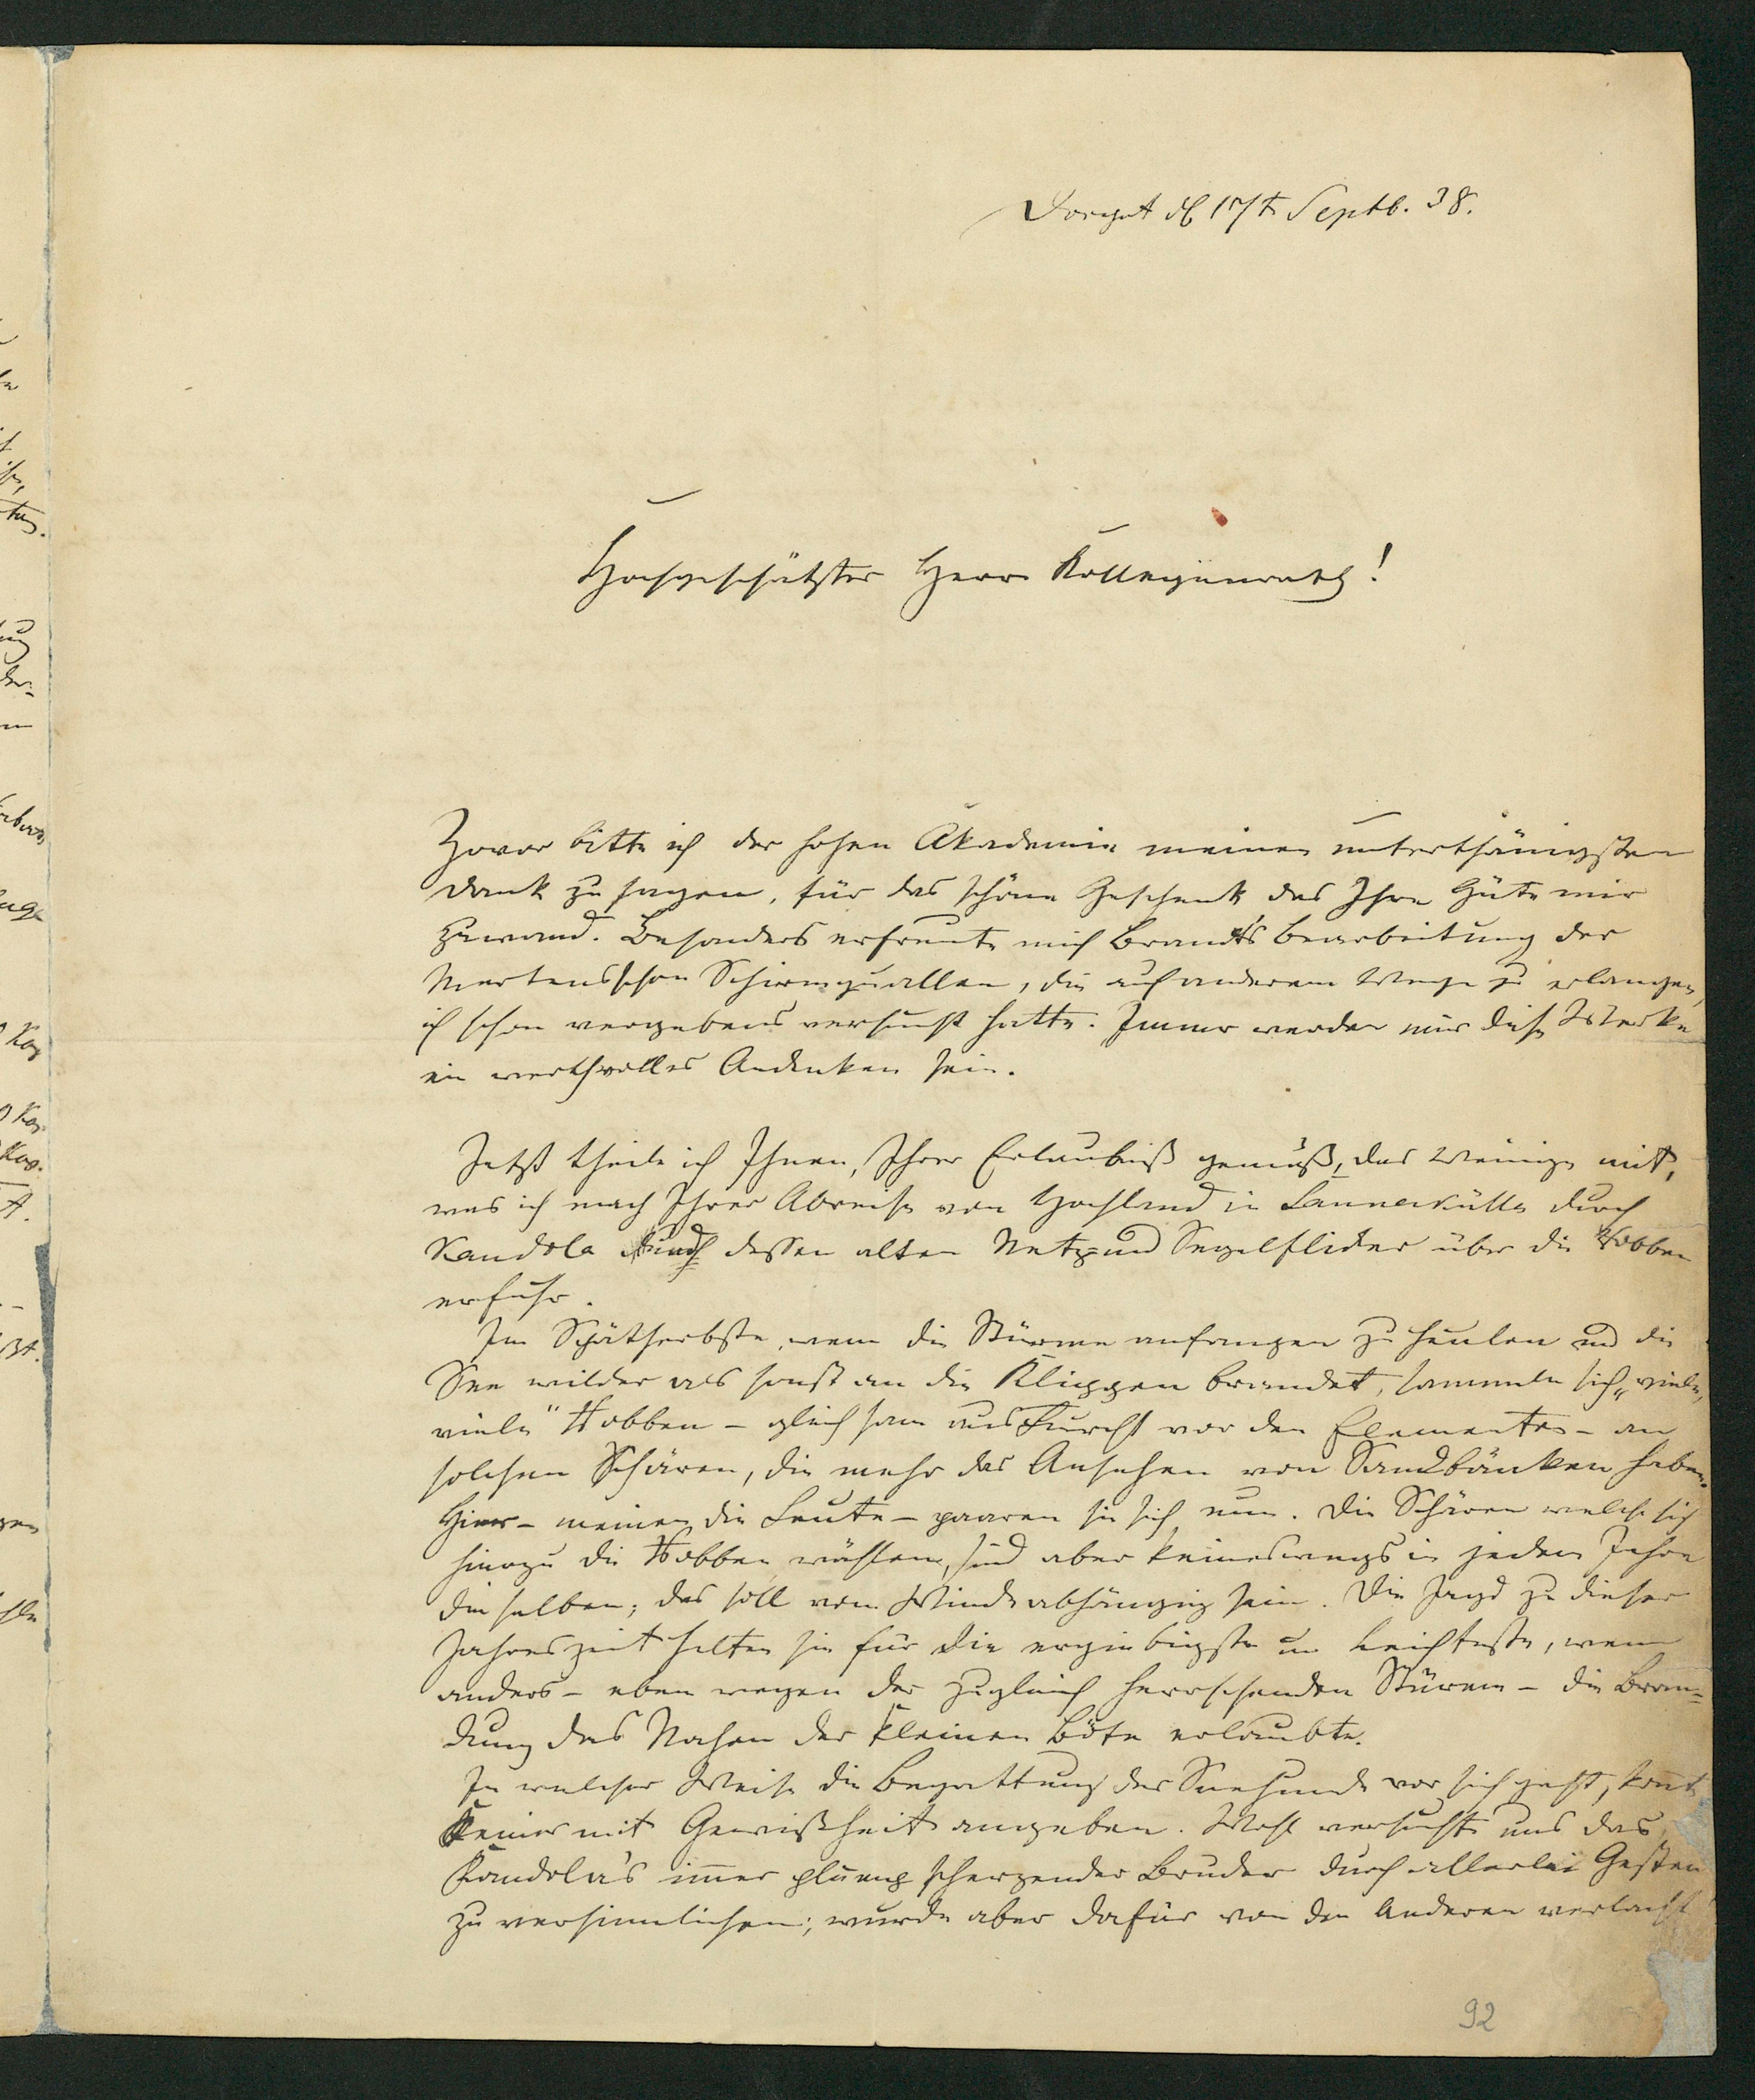 Dorpat d 17t Septb. 38.
Hochgeschätzter Herr Kollegienrath!
Zuvor bitte ich der hohen Akademie meinen unterthänigsten
Dank zu sagen, für das schöne Geschenk das Ihre Güte mir
zuwand. Besonders erfreute mich Brandt's Bearbeitung der
Mertensschen Schirmquallen, die auf anderem Wege zu erlangen,
ich schon vergebens versucht hatte. Immer werden mir diese Werke
ein werthvolles Andenken sein.
Jetzt theile ich Ihnen, Ihrer Erlaubniß gemäß, das Wenige mit,
was ich nach Ihrer Abreise von Hochland in Launakülla durch
Kandola und dessen alten Netz- und Segelflicker über die Robben
erfuhr.
Im Spätherbste, wenn die Stürme anfangen zu heulen und die
See wilder als sonst an die Klippen brandet, sammeln sich „viele,
viele" Robben – gleichsam aus Furcht vor den Elementen – an
solchen Schären, die mehr das Ansehen von Sandbänken haben.
Hier – meinen die Leute – paaren sie sich nun. Die Schären welche sich
hinzu die Robben wählen, sind aber keineswegs in jedem Jahre
dieselben; das soll vom Winde abhängig sein. Die Jagd zu dieser
Jahreszeit halten sie für die ergiebigste un leichteste, wenn
anders – eben wegen der zugleich herrschenden Stürme – die Bran-
dung das Nahen der kleinen Böte erlaubte.
In welcher Weise die Begattung der Seehunde vor sich geht, konnte
Keiner mit Gewißheit angeben. Wohl versuchte uns das
Kandola's immer plump scherzender Bruder durch allerlei Gesten
zu versinnlichen; wurde aber dafür von den Anderen verlacht
92